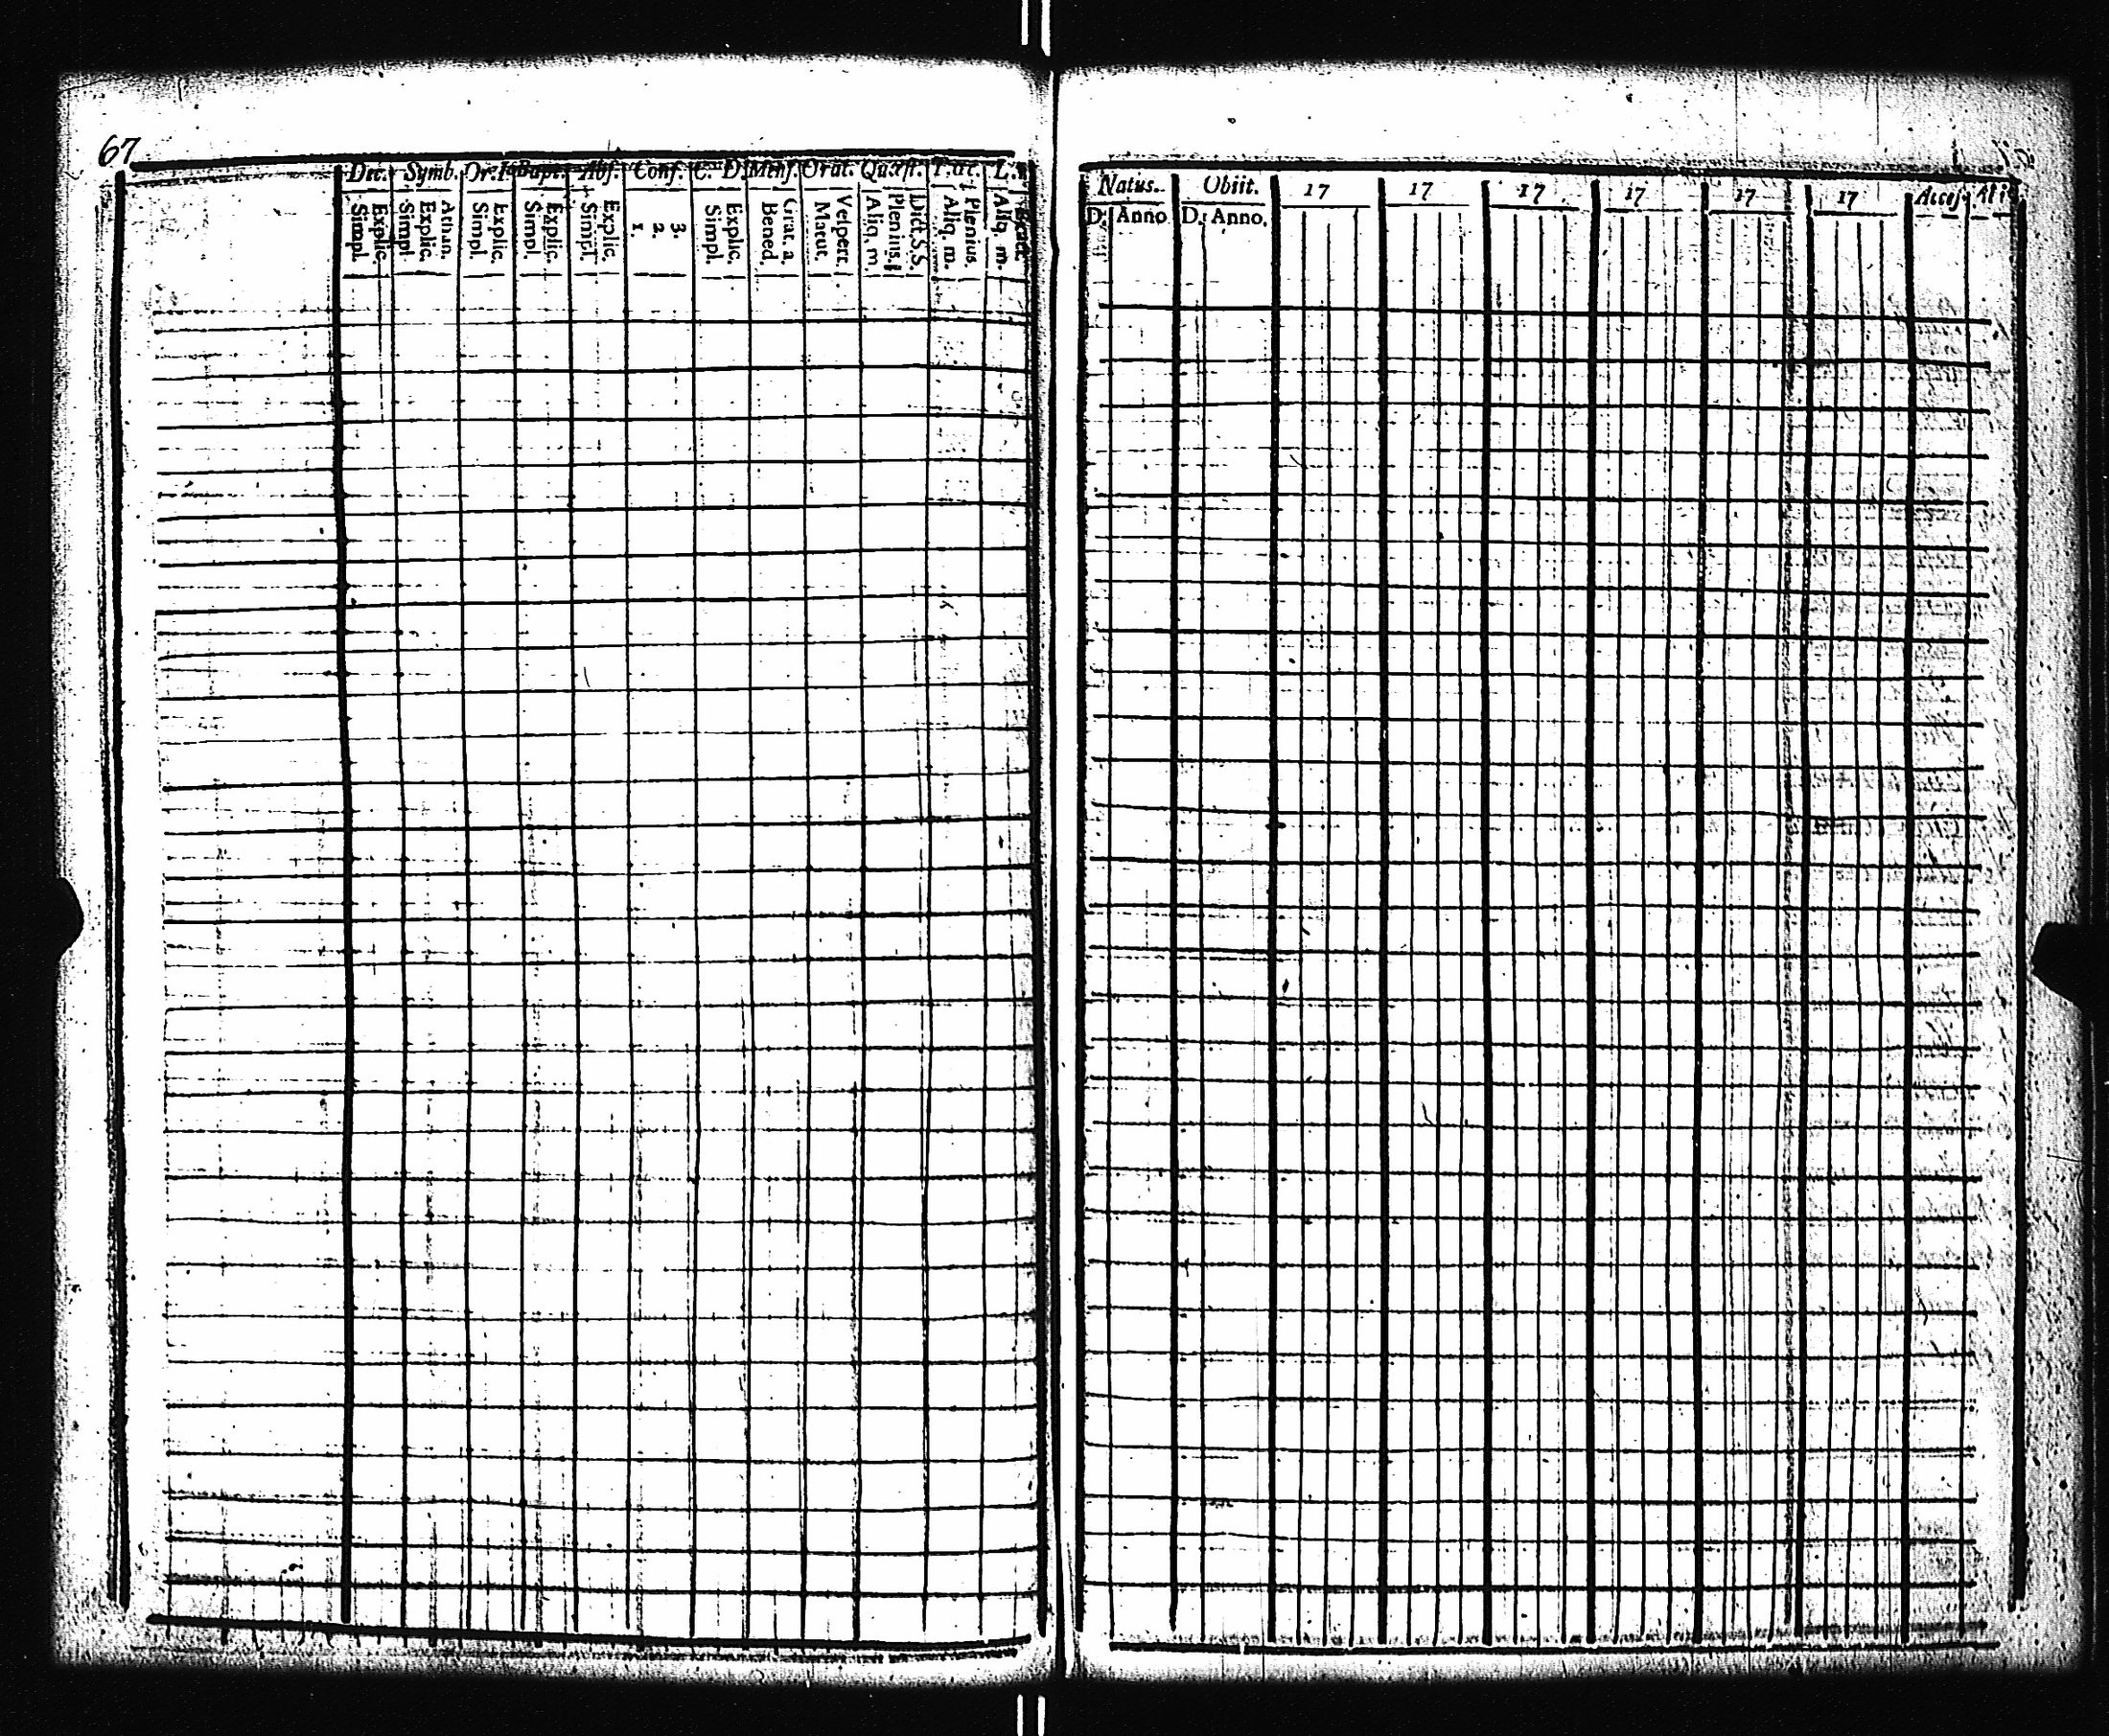 67
Dec. Symb. Or. Bapt. Abs. Conf. C. D. Mens. Orat. Quæst. T.ac. L.
Simpl. Explic.
Simpl. Explic. Athan.
Simpl. Explic.
Simpl. Explic.
Simpl. Explic.
1. 2. 3.
Simpl. Explic.
Bened. Grat. a.
Matut. Vespert.
Aliq. m. Plenius. Dict. S.S.
Aliq. m. Plenius.
Aliq. m.
Natus. Obiit. 17 17 17 17 17 17 Acces.
D. Anno D. Anno.